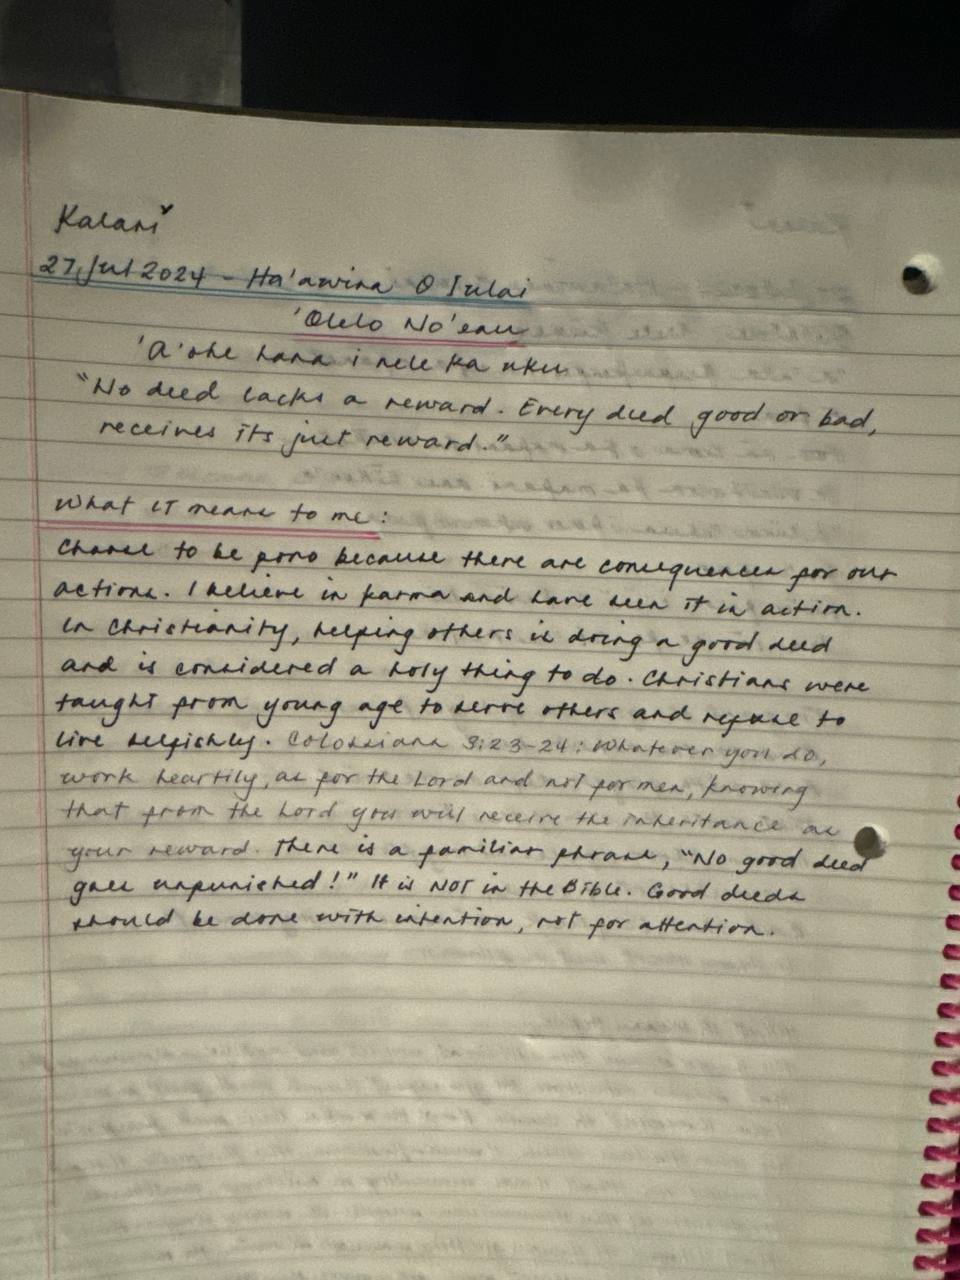 Kalani
27 Jul 2024 - Ha'awina O Iulai
'Olelo No'eau
'A'ohe hana i nele ka uku.
"No deed lacks a reward. Every deed good or bad,
receives its just reward."
What it means to me:
Chance to be pono because there are consequences for our
actions. I believe in karma and have seen it in action.
In Christianity, helping others is doing a good deed
and is considered a holy thing to do. Christians were
taught from young age to serve others and refuse to
live selfishly. Colossians 3:23-24: Whatever you do,
work heartily, as for the Lord and not for men, knowing
that from the Lord you will receive the inheritance as
your reward. There is a familiar phrase, "No good deed
goes unpunished!" It is NOT in the Bible. Good deeds
should be done with intention, not for attention.